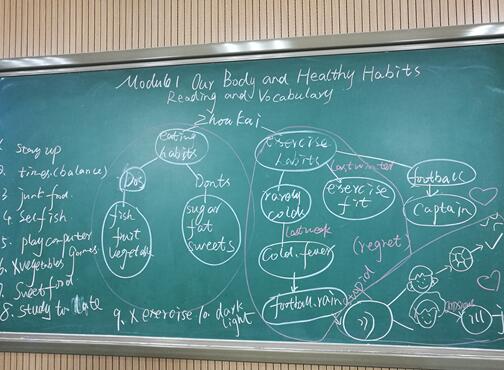 Module 1 Our Body and Healthy Habits
Reading and Vocabulary
Zhou Kai
1. Stay up
2. times.(balance)
3 junk food
4. Selfish
5. play computer games
6. X vegetables
7. Sweet food
8. Study to late
9. X exercise for dark light
eating habits
Dos
Donts
fish
fruit
vegetable
sugar
fat
sweets
exercise habits
rarely colds
last week
Cold. fever
football. rain
exercise fit
football
Captain
(regret)
stupid